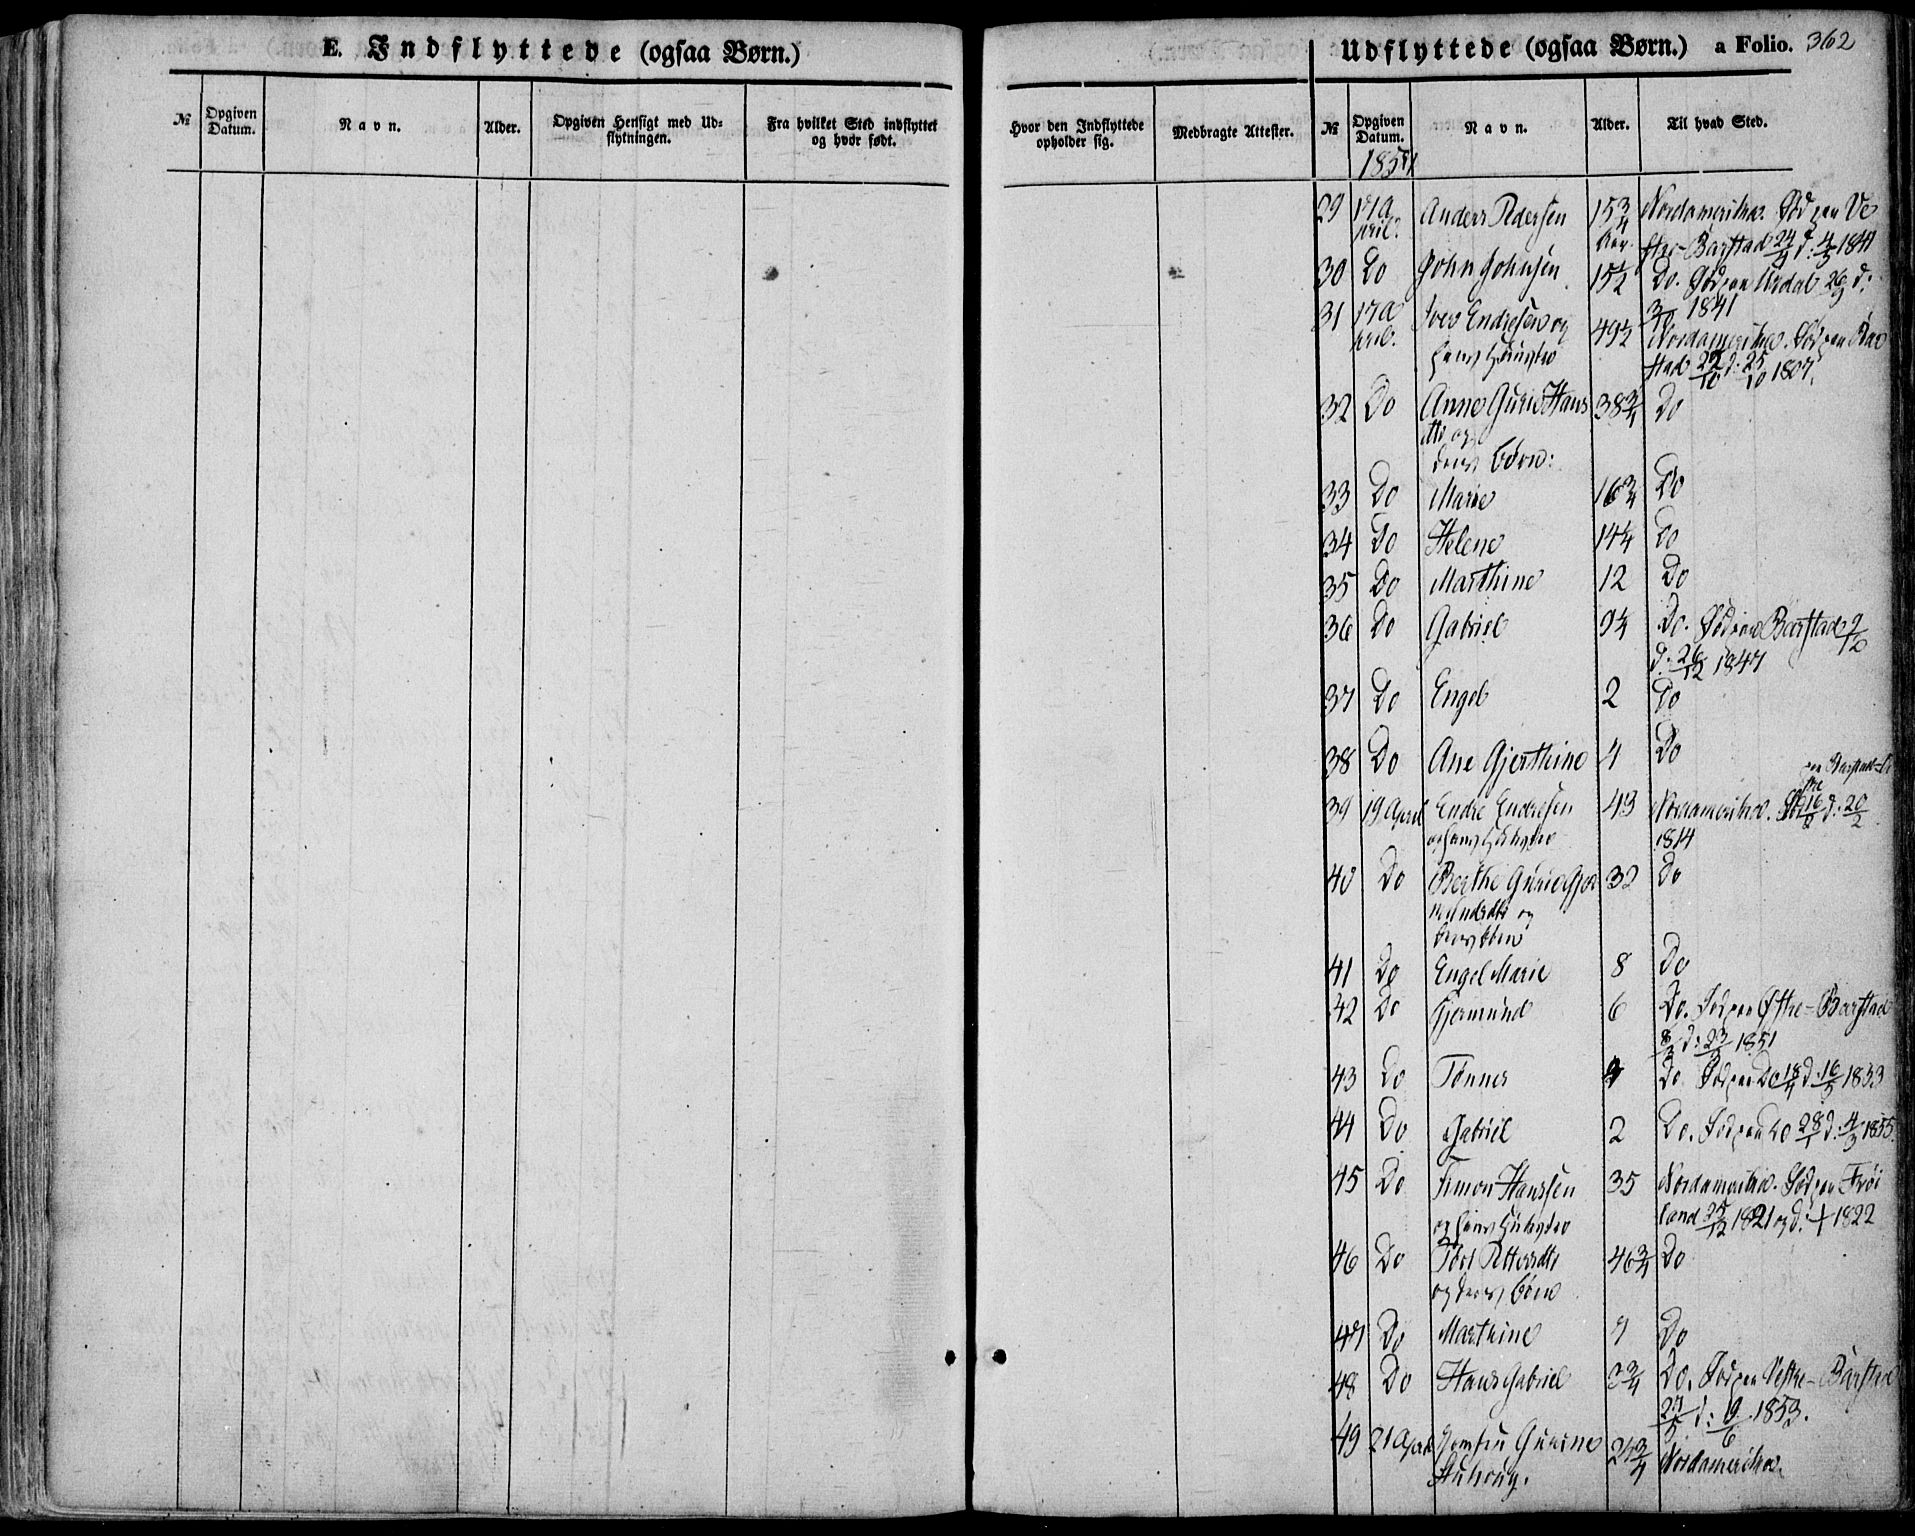 E. Indflyttede (ogsaa Børn.)
№
Opgiven Datum.
Navn.
Alder.
Opgiven Hensigt med Ud=
flytningen.
Fra hvilket Sted indflyttet
og hvor født.
Hvor den Indflyttede
opholder sig.
Medbragte Attester.
Udflyttede (ogsaa Børn.) a Folio. 362
№
Opgiven Datum.
Navn.
Alder.
Til hvad Sted.
1857
29 17 A Anders Pedersen 15 3/4 Nordamerika. Fød paa Ve
pril. Aar. stre-Barstad 24/4 d: 4/5 1841
30 Do John Johnsen 15 1/2 Do. Fød paa Urdal 26/9 d:
1841
31 17 A Iver Endresen og 49 1/2 Nordamerika. Fød paa Bar
pril. hans Hustro stad 22/10 d: 25/10 1807.
32 Do Anne Gurie Hans 38 3/4 Do
dtr og
deres børn:
33 Do Marie 16 3/4 Do
34 Do Helene 14 1/4 Do
35 Do Marthine 12 Do
36 Do Gabriel 9 1/4 Do. Fød paa Barstad 9/12
d: 26/12 1847
37 Do Engel 2 Do
38 Do Ane Gjerthine 4 Do
paa Barstad-
39 19 April Endre Endresen 43 Nordamerika. Fød 16/2 d: 20/2
og hans Hustro 1814
40 Do Berthe Gurie Gjer 32 Do
mundsdtr og
deres børn
41 Do Engel Marie 8 Do
42 Do Gjermund 6 Do. Fød paa Østre-Barstad
8/3 d: 23/3 1851
43 Do Tønnes 4 Do Fød paa Do 18/4 d: 16/5 1853
44 Do Gabriel 2 Do. Fød paa Do 28/1 d: 4/3 1855.
45 Do Simon Hanssen 35 Nordamerika. Fød paa Frøi
og hans Hustro land 25/12 1821 og d: 1822
46 Do Tøri Pettersdtr 46 3/4 Do
og deres børn
47 Do Marthine 7 Do
48 Do Hans Gabriel 3 3/4 Do. Fød paa Vestre-Barstad
27/5 d: 19/6 1853.
49 21 April Gurine 24 3/4 Nordamerika.